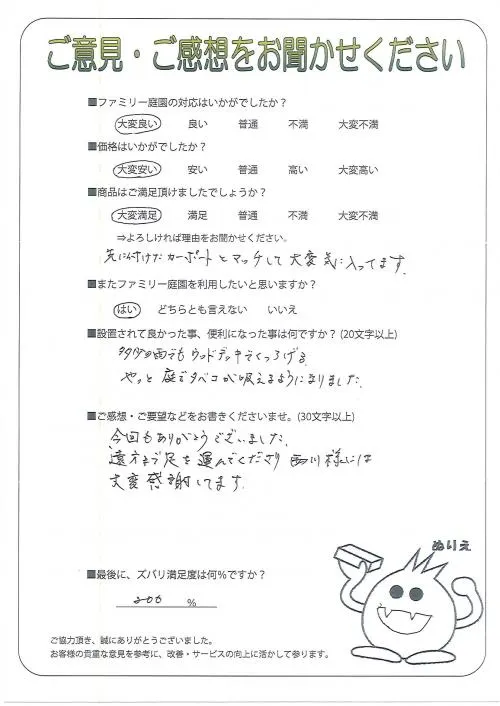 ご意見・ご感想をお聞かせください
■ファミリー庭園の対応はいかがでしたか？
大変良い 良い 普通 不満 大変不満
■価格はいかがでしたか？
大変安い 安い 普通 高い 大変高い
■商品はご満足頂けましたでしょうか？
大変満足 満足 普通 不満 大変不満
⇒よろしければ理由をお聞かせください。
先に付けたカーポートとマッチして大変気に入ってます。
■またファミリー庭園を利用したいと思いますか？
はい どちらとも言えない いいえ
■設置されて良かった事、便利になった事は何ですか？(20文字以上)
多少の雨でもウッドデッキでくつろげる
やっと庭でタバコが吸えるようになりました。
■ご感想・ご要望などをお書きくださいませ。(30文字以上)
今回もありがとうございました。
遠方まで足を運んでくださり西川様には
大変感謝してます。
ぬりえ
■最後に、ズバリ満足度は何％ですか？
200 ％
ご協力頂き、誠にありがとうございました。
お客様の貴重な意見を参考に、改善・サービスの向上に活かして参ります。